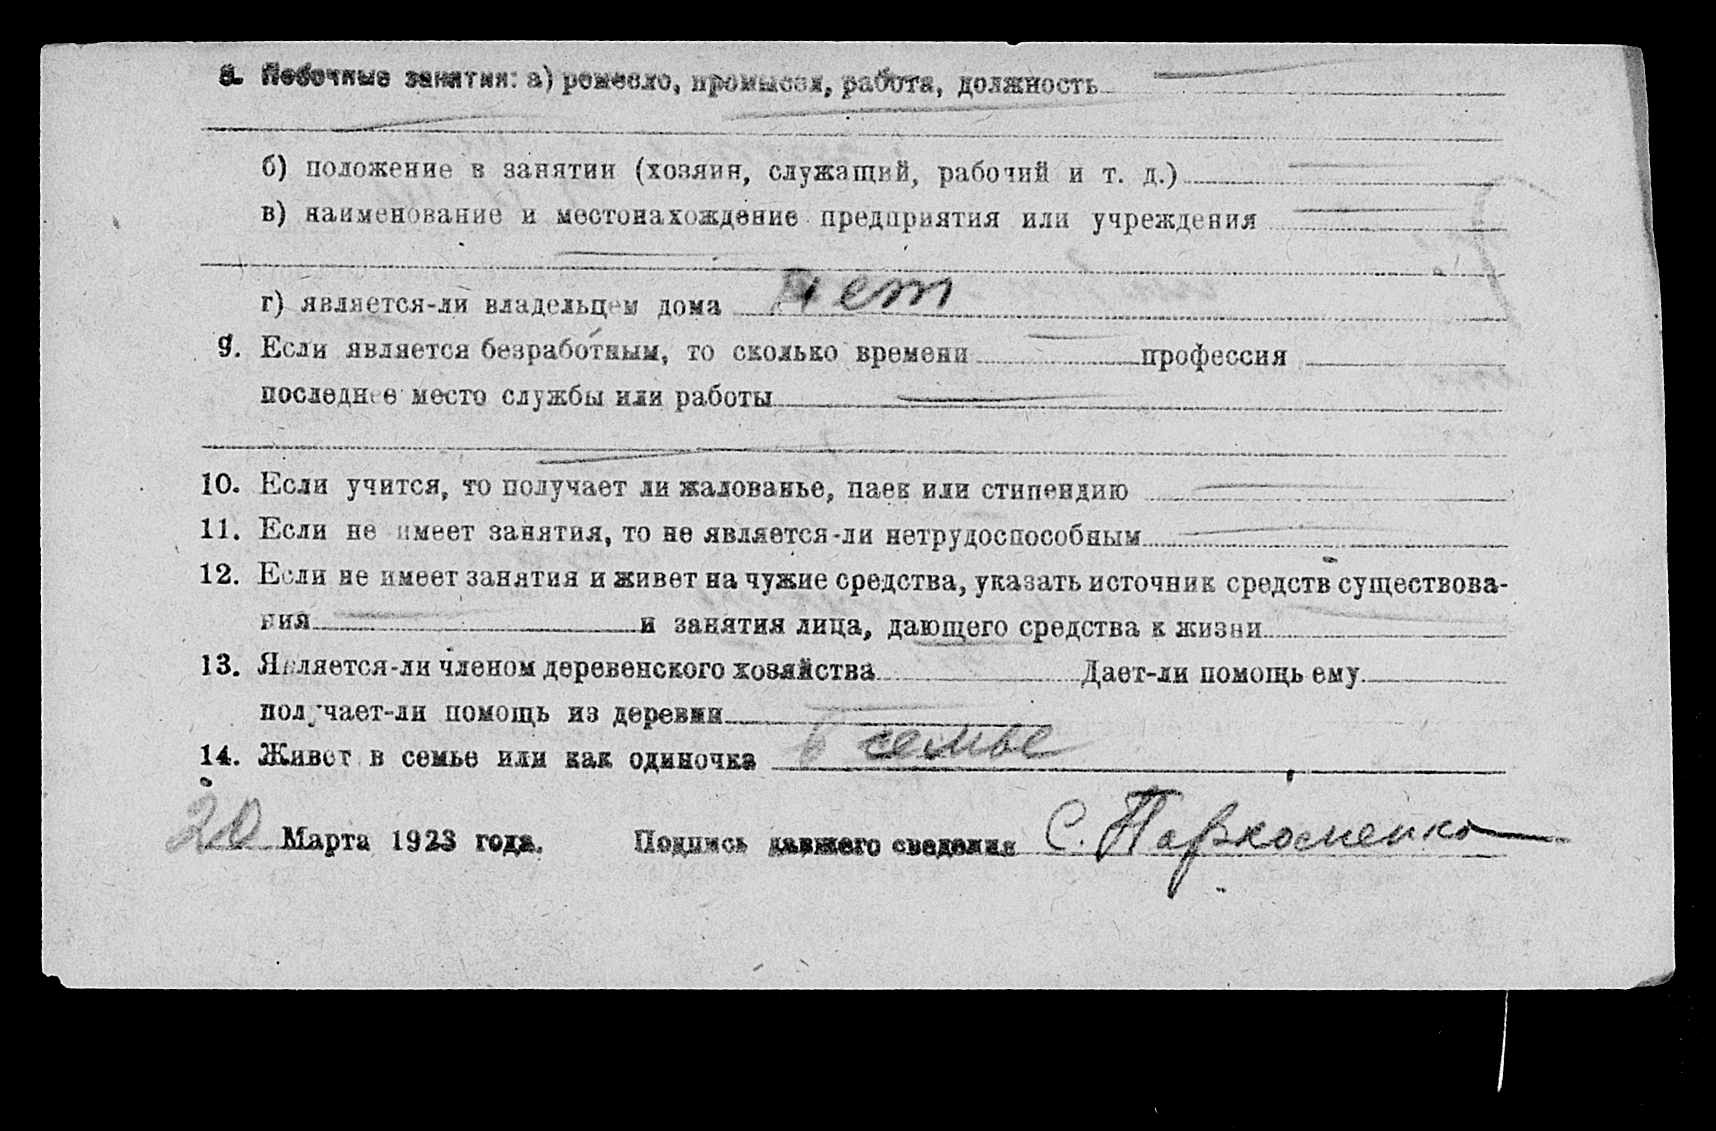 8. Побочные занятия: а) ремесло, промысел, работа, должность
б) положение в занятии (хозяин, служащий, рабочий и т. д.)
в) наименование и местонахождение предприятия или учреждения
г) является-ли владельцем дома нет
9. Если является безработным, то сколько времени профессия
последнее место службы или работы
10. Если учится, то получает ли жалованье, паек или стипендию
11. Если не имеет занятия, то не является-ли нетрудоспособным
12. Если не имеет занятия и живет на чужие средства, указать источник средств существова-
ния и занятия лица, дающего средства к жизни
13. Является-ли членом деревенского хозяйства Дает-ли помощь ему
получает-ли помощь из деревни
14. Живет в семье или как одиночка в семье
20 Марта 1923 года. Подпись давшего сведения С. Пархоменко